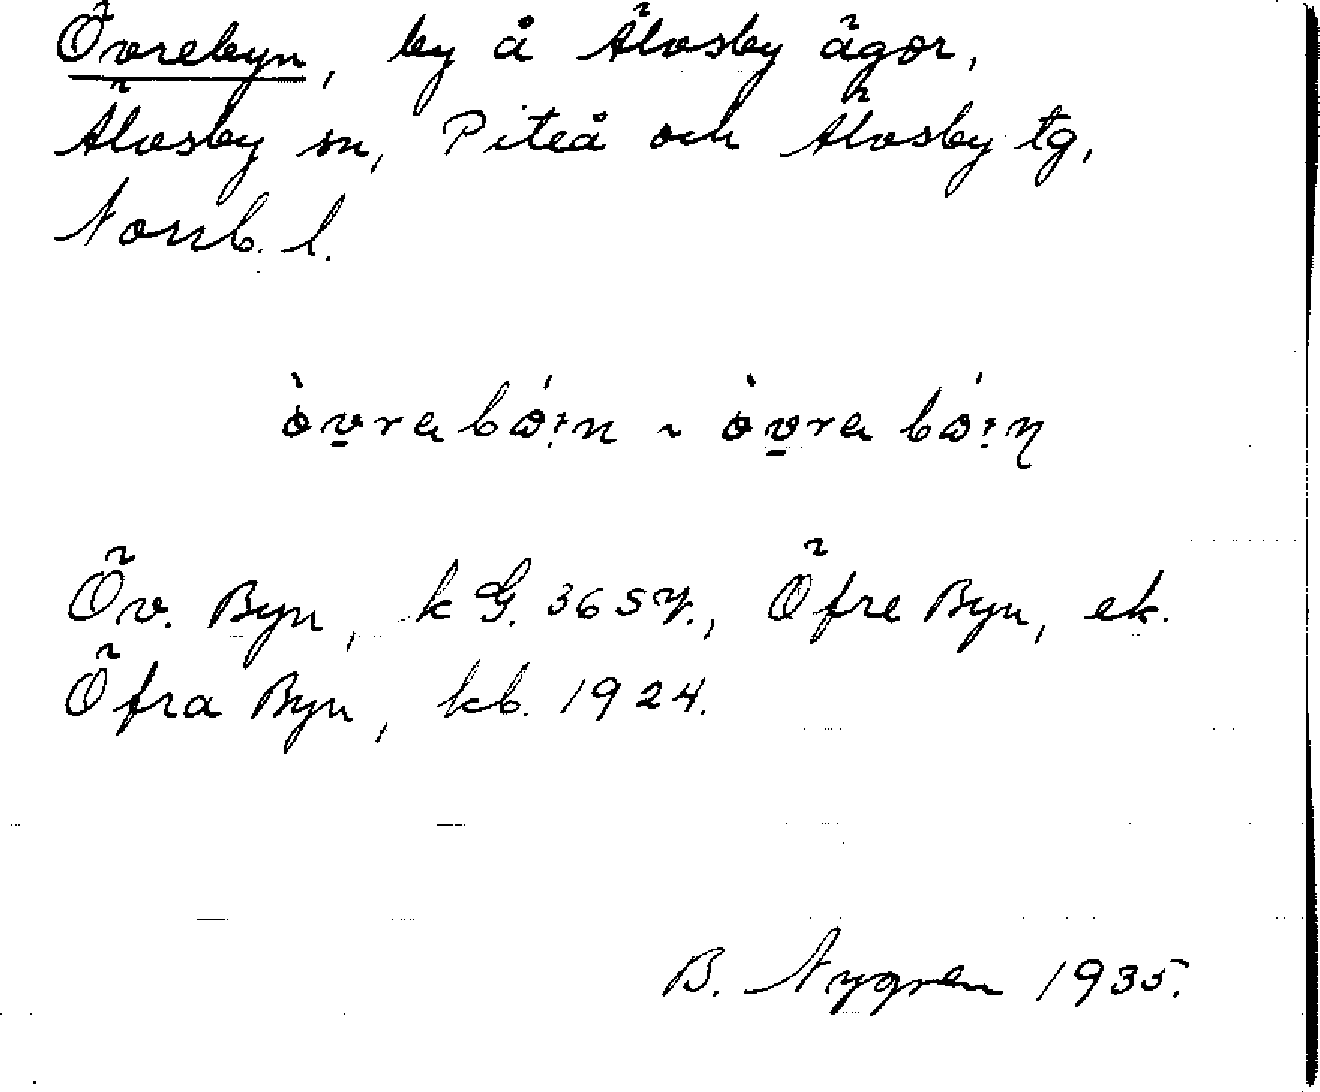 Övrebyn, by å Älvsby ägor,
Älvsby sn, Piteå och Älvsby tg,
Norrb. l.
Öv. Byn, k G. 3657., Öfre Byn, ek.
Öfra Byn, kb. 1924.
B. Nygren 1935.